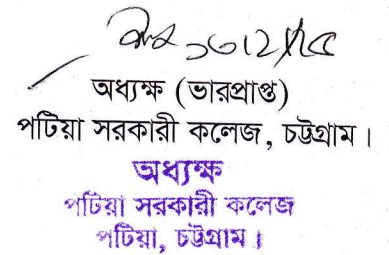 অধ্যক্ষ (ভারপ্রাপ্ত)
পটিয়া সরকারী কলেজ, চট্টগ্রাম।
অধ্যক্ষ
পটিয়া সরকারী কলেজ
পটিয়া, চট্টগ্রাম।